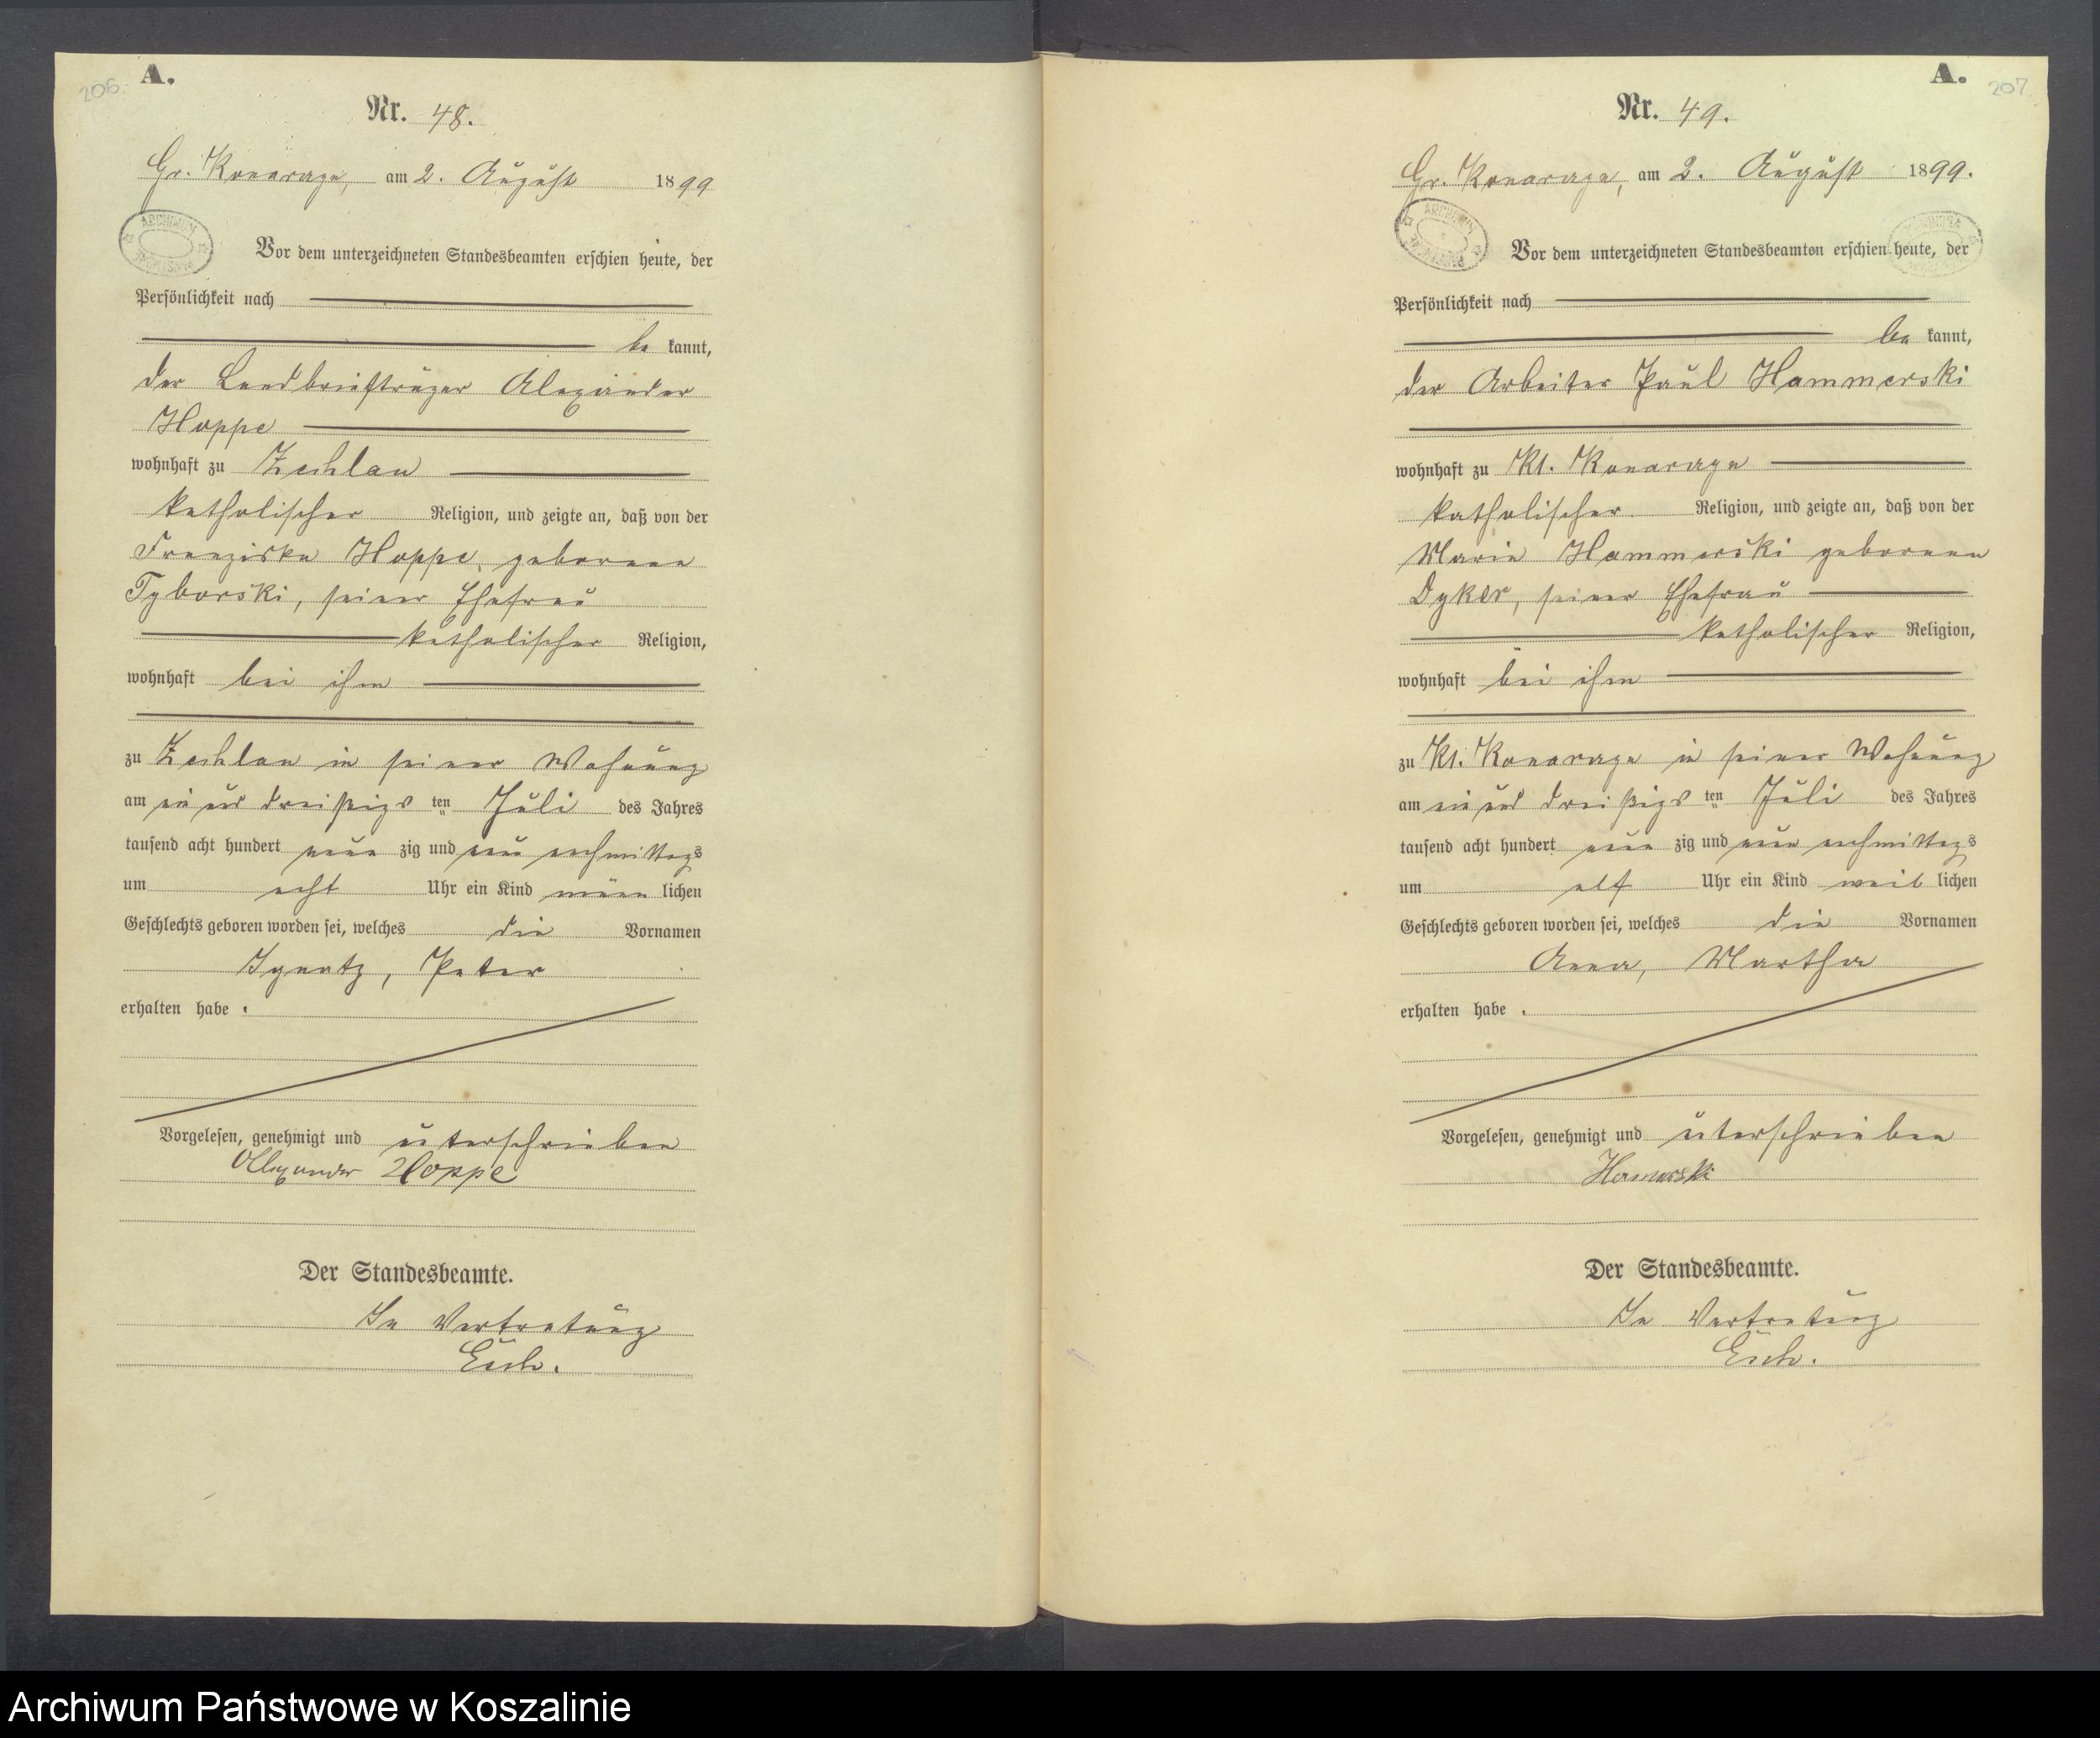 206.
A.
Nr. 48.
Gr. Konarzyn, am 2. August 1899
ARCHIWUM
Vor dem unterzeichneten Standesbeamten erschien heute, der
Persönlichkeit nach
be kannt,
der Landbriefträger Alexander
Hoppe
wohnhaft zu Zechlau
katholischer Religion, und zeigte an, daß von der
Franziska Hoppe, geborenen
Tyborski, seiner Ehefrau
katholischer Religion,
wohnhaft bei ihm
zu Zechlau in seiner Wohnung
am ein und dreißigs ten Juli des Jahres
tausend acht hundert neun zig und neun nachmittags
um acht Uhr ein Kind männ lichen
Geschlechts geboren worden sei, welches die Vornamen
Ignatz, Peter
erhalten habe.
Vorgelesen, genehmigt und unterschrieben
Allexander Hoppe
Der Standesbeamte.
In Vertretung
Esch.
A.
207
Nr. 49.
Gr. Konarzyn, am 2. August 1899.
ARCHIWUM
Vor dem unterzeichneten Standesbeamten erschien heute, der
Persönlichkeit nach
be kannt,
der Arbeiter Paul Hammerski
wohnhaft zu Kl. Konarzyn
katholischer Religion, und zeigte an, daß von der
Marie Hammerski geborenen
Dyker, seiner Ehefrau
katholischer Religion,
wohnhaft bei ihm
zu Kl. Konarzyn in seiner Wohnung
am ein und dreißigs ten Juli des Jahres
tausend acht hundert neun zig und neun nachmittags
um elf Uhr ein Kind weib lichen
Geschlechts geboren worden sei, welches die Vornamen
Anna, Martha
erhalten habe.
Vorgelesen, genehmigt und unterschrieben
Hamerski
Der Standesbeamte.
In Vertretung
Esch.
Archiwum Państwowe w Koszalinie